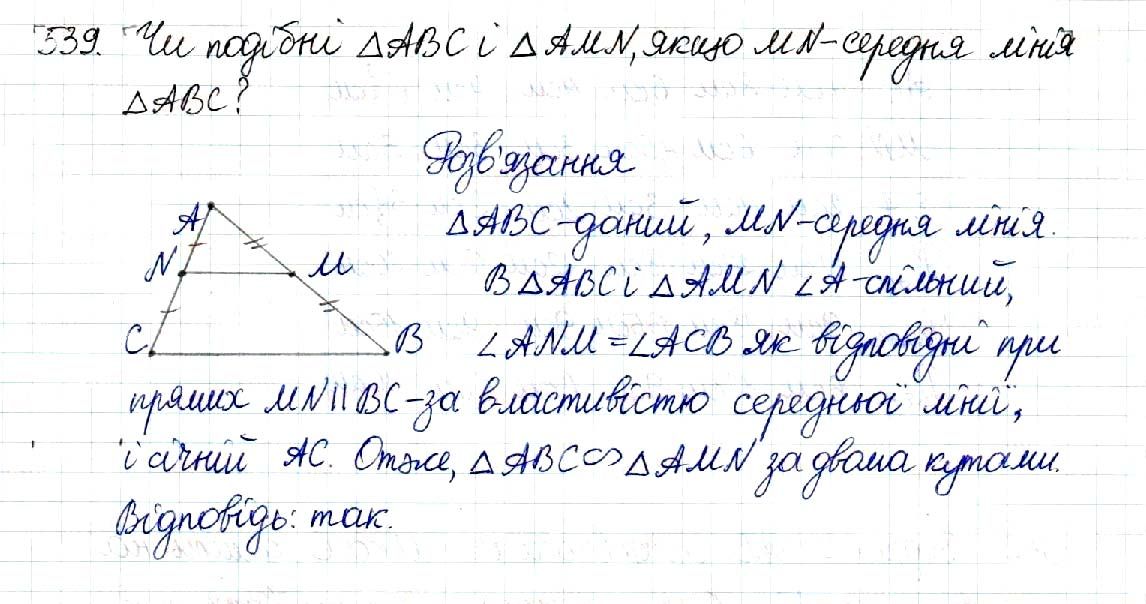 539. Чи подібні △ABC і △AMN, якщо MN-середня лінія
△ABC?
Розв'язання
A
N
M
C
B
△ABC-даний, MN-середня лінія.
В △ABC і △AMN ∠A-спільний,
∠ANM = ∠ACB як відповідні при
прямих MN||BC-за властивістю середньої лінії,
і січній AC. Отже, △ABC∾△AMN за двома кутами.
Відповідь: так.